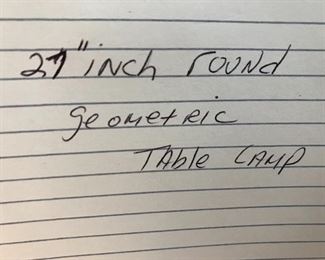 27" inch round
geometric
Table Lamp